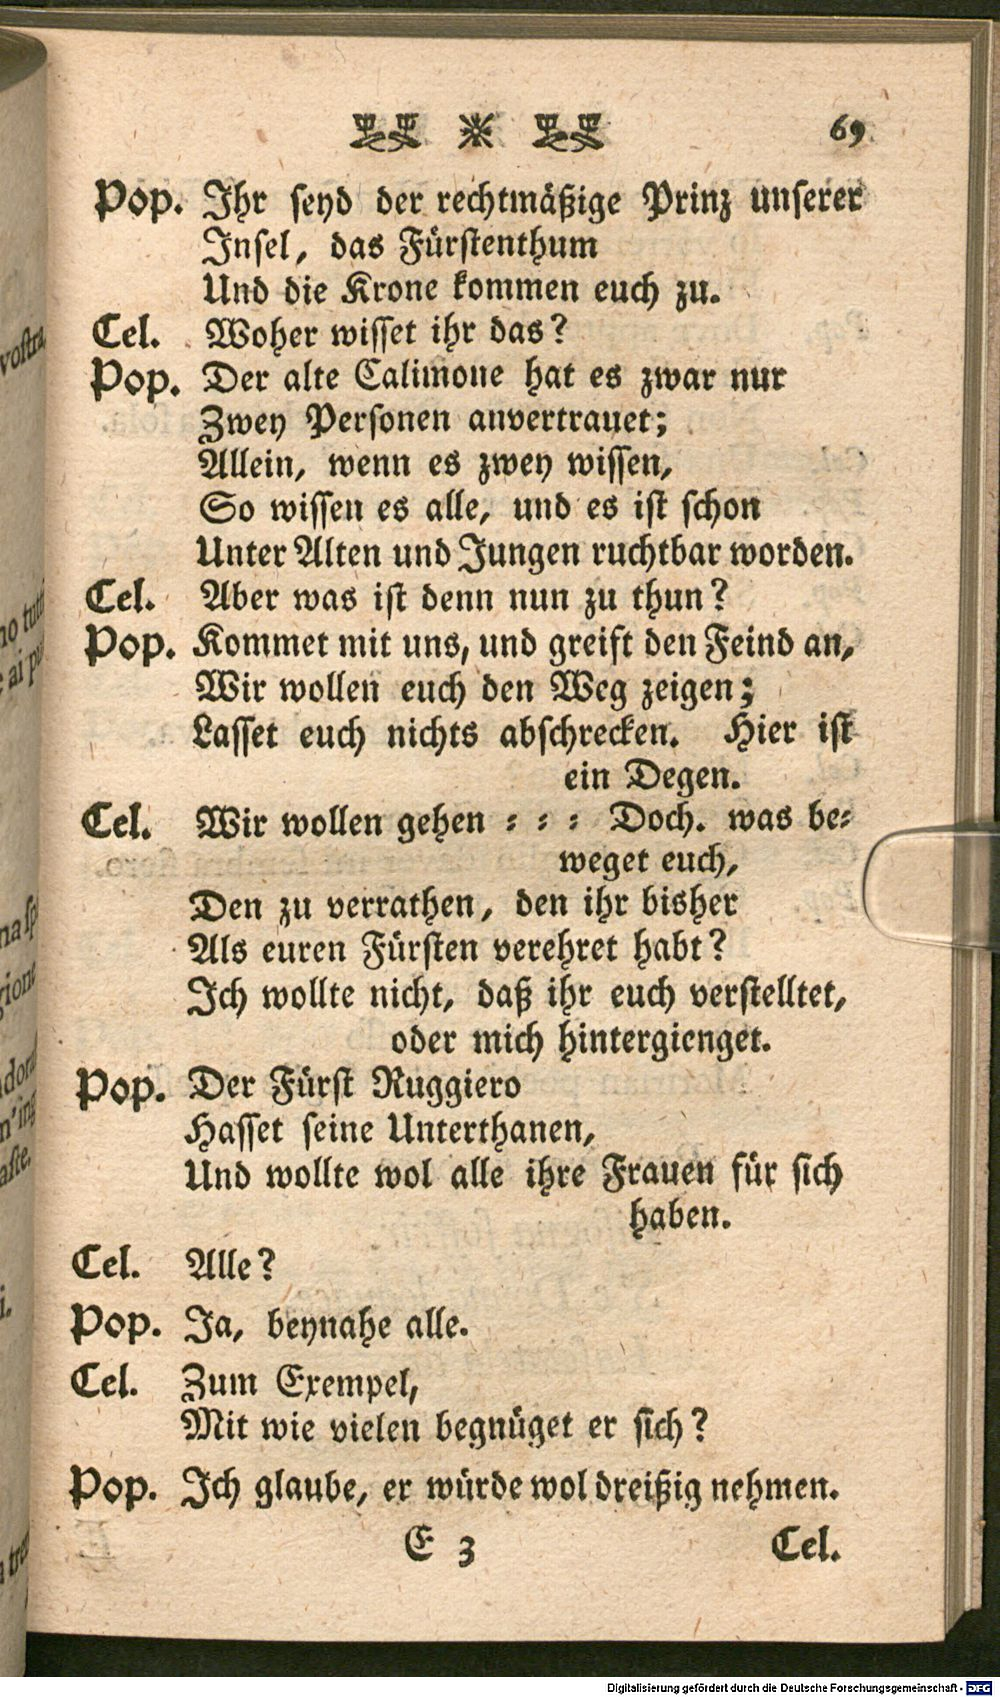 69
Pop. Ihr seyd der rechtmäßige Prinz unserer
Insel, das Fürstenthum
Und die Krone kommen euch zu.
Cel. Woher wisset ihr das?
Pop. Der alte Calimone hat es zwar nur
Zwey Personen anvertrauet;
Allein, wenn es zwey wissen,
So wissen es alle, und es ist schon
Unter Alten und Jungen ruchtbar worden.
Cel. Aber was ist denn nun zu thun?
Pop. Kommet mit uns, und greift den Feind an,
Wir wollen euch den Weg zeigen;
Lasset euch nichts abschrecken. Hier ist
ein Degen.
Cel. Wir wollen gehen = = = Doch. was be=
weget euch,
Den zu verrathen, den ihr bisher
Als euren Fürsten verehret habt?
Ich wollte nicht, daß ihr euch verstelltet,
oder mich hintergienget.
Pop. Der Fürst Ruggiero
Hasset seine Unterthanen,
Und wollte wol alle ihre Frauen für sich
haben.
Cel. Alle?
Pop. Ja, beynahe alle.
Cel. Zum Exempel,
Mit wie vielen begnüget er sich?
Pop. Ich glaube, er würde wol dreißig nehmen.
E 3 Cel.
Digitalisierung gefördert durch die Deutsche Forschungsgemeinschaft - DFG